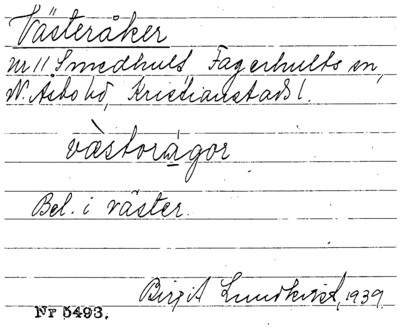 Västeråker
nr 11 Smedhult Fagerhults sn,
N. Åsbo hd, Kristianstads l.
västorågor
Bel. i väster.
Birgit Lundkvist, 1939
Nr 5493.